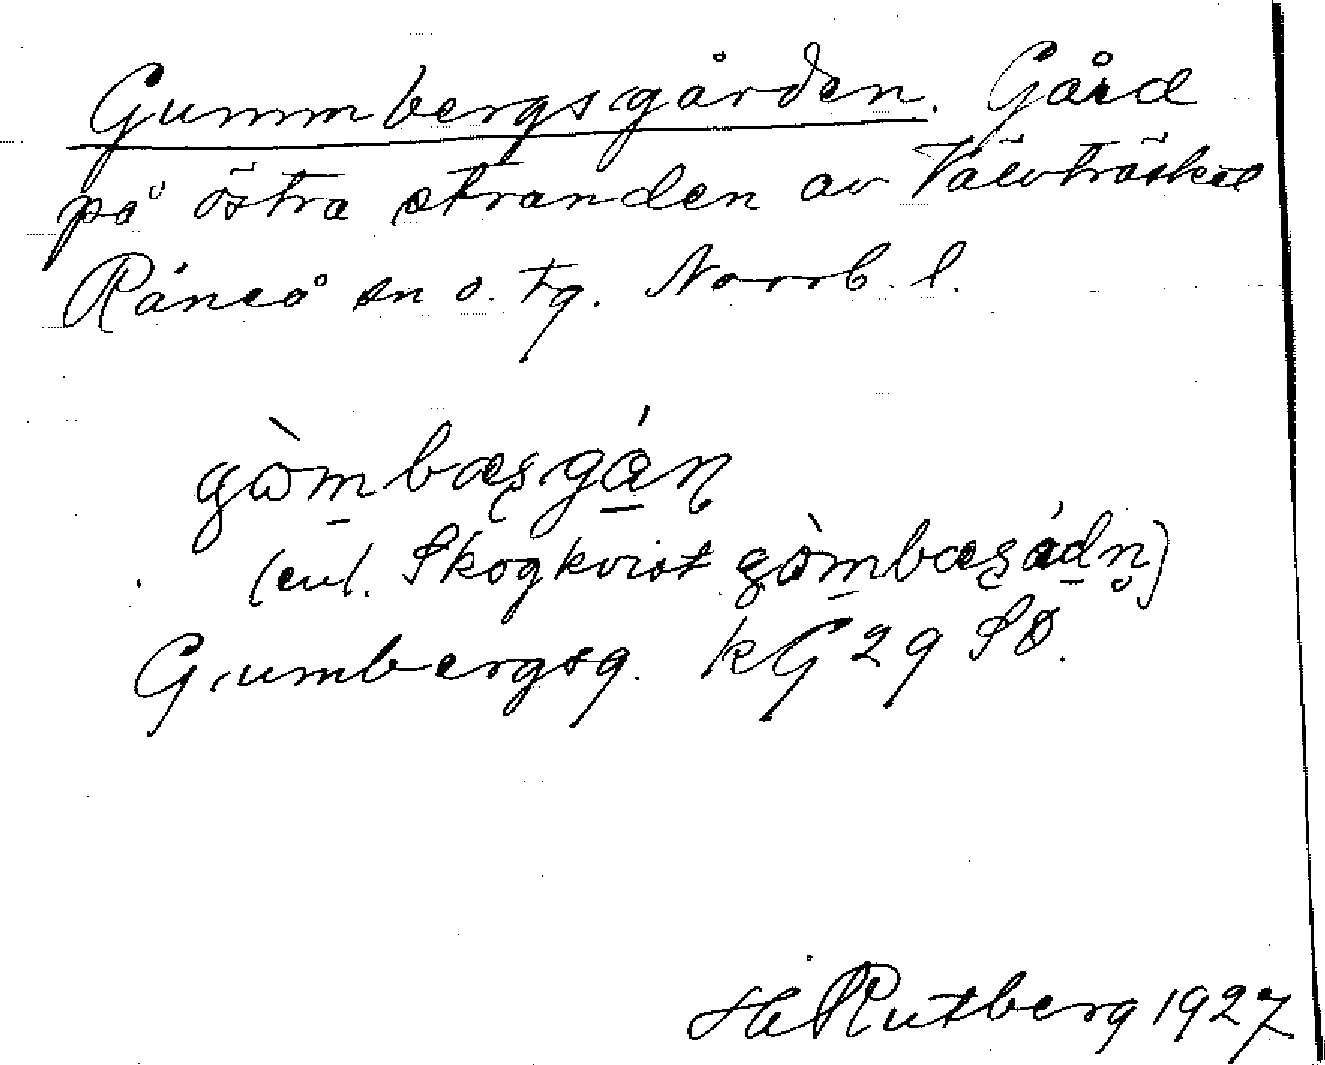 Gummbergsgården. Gård
på östra stranden av Välvträsket
Råneå sn o. tg. Norrb. l.
gòmbæșgáṇ
(enl. Skogkvist gòmbæșádṇ)
Gumbergsg. kG 29 SO.
H Rutberg 1927